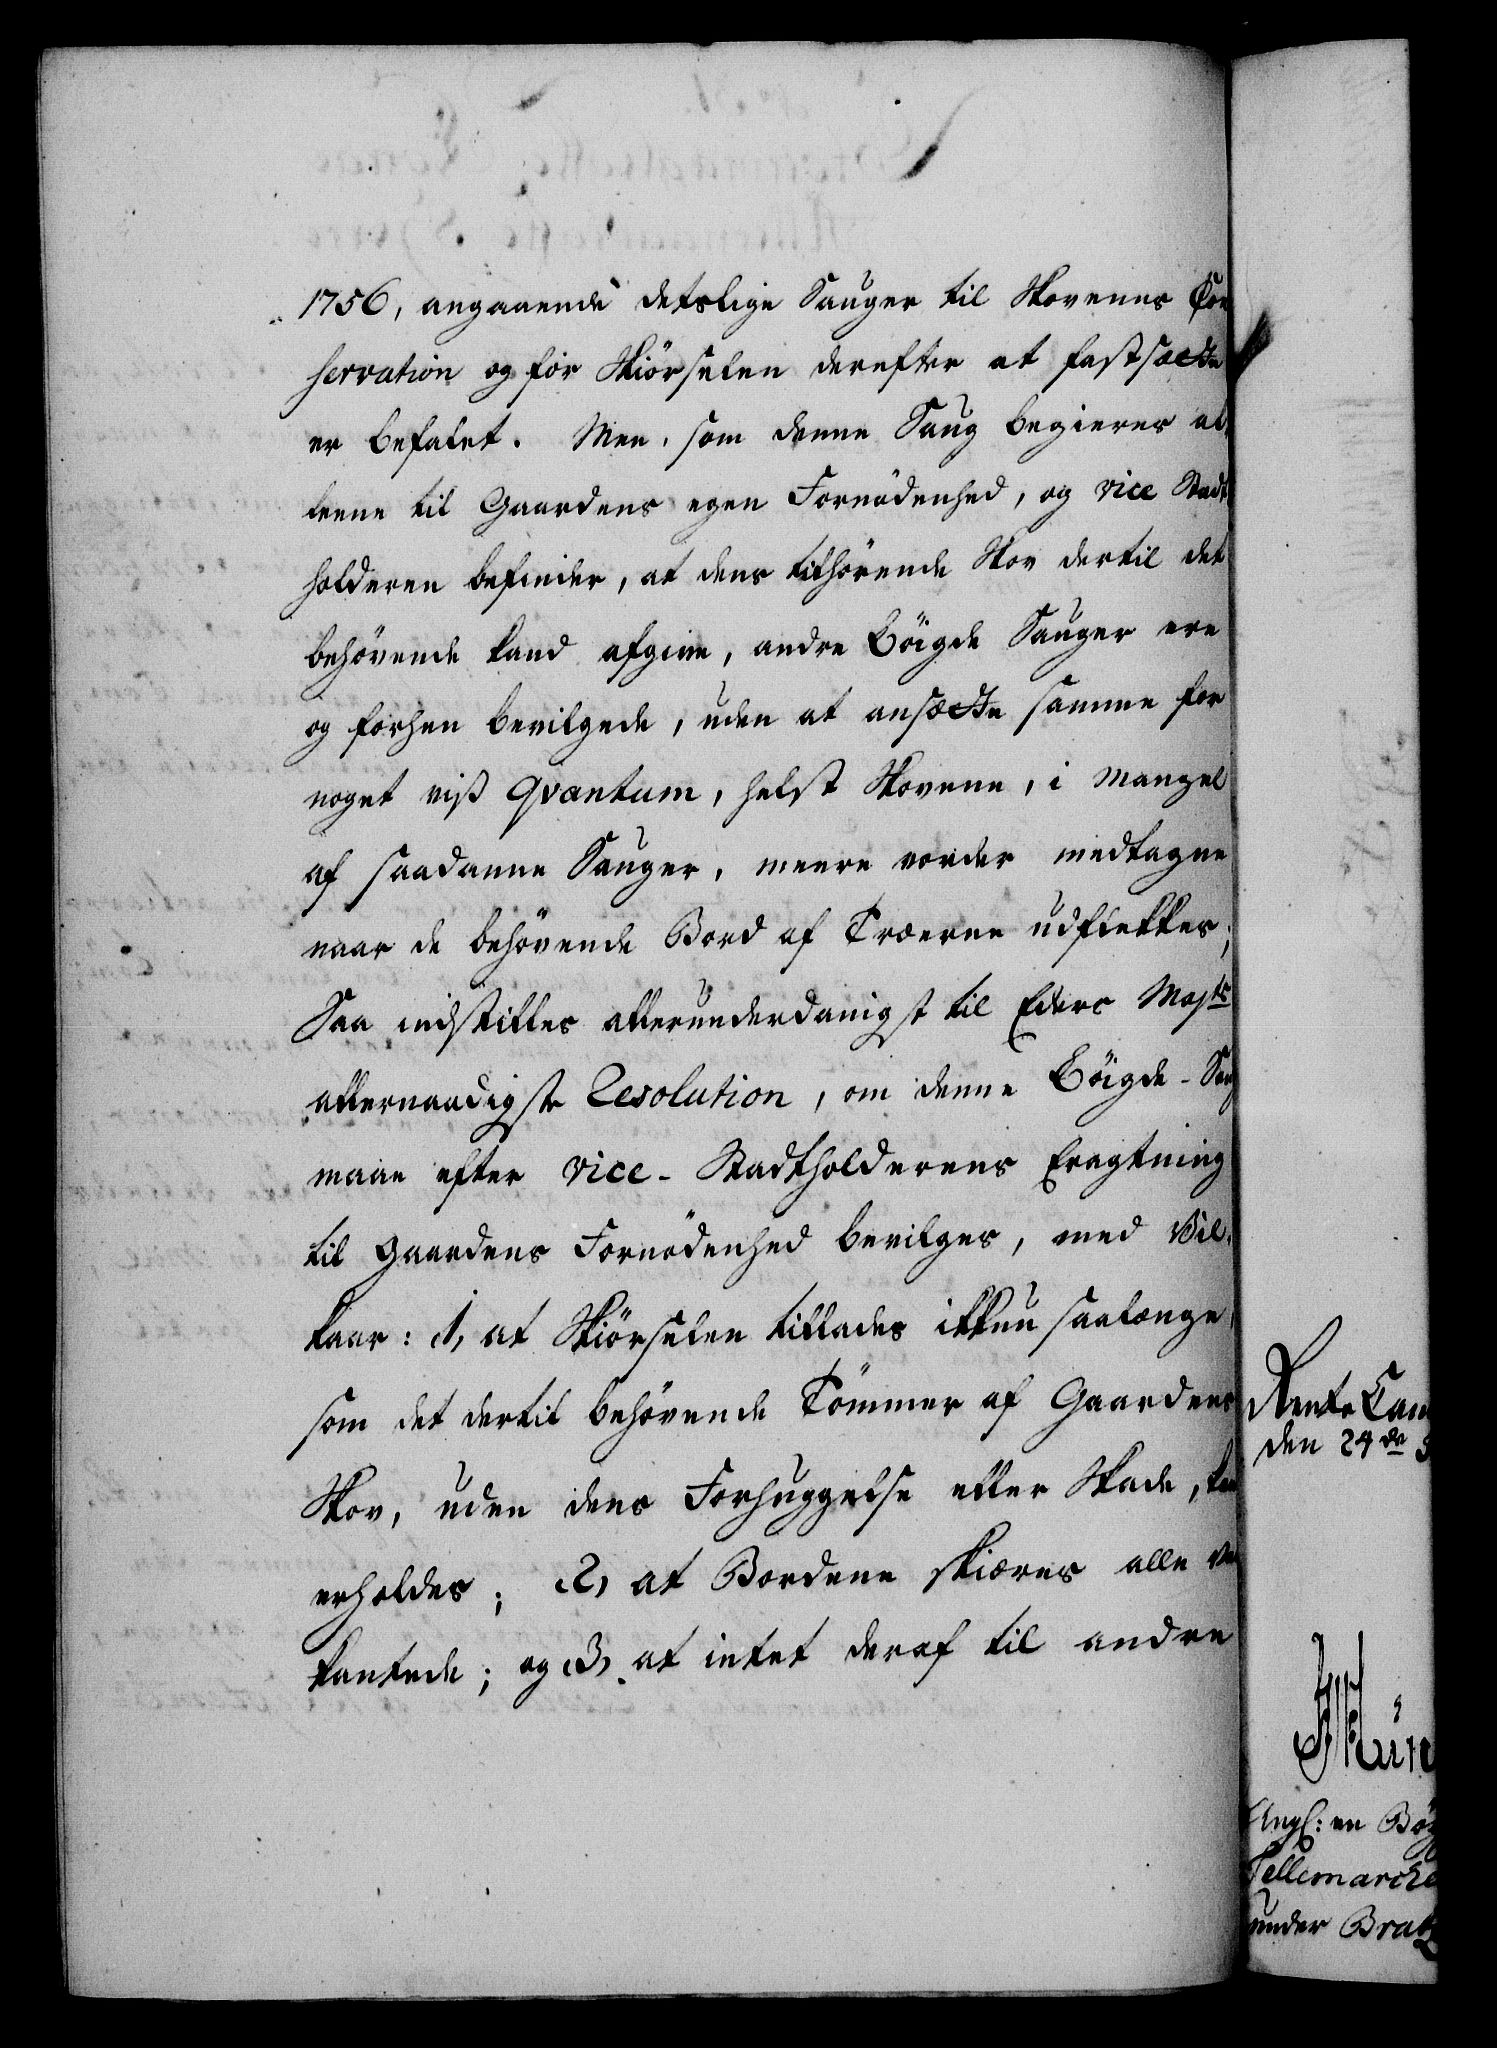 1756, angaaende detslige Sauger til Skovenes Con
servation og for Skiörselen derefter at fastsætte
er befalet. Men, som denne Saug begieres al,
leene til Gaardens egen Fornödenhed, og vice Stadt
holderen befinder, at dens tilhörende Skov dertil det
behövende kand afgive, andre Böigde Sauger ere
og forhen bevilgede, uden at ansætte samme for
noget vist qvantum, helst Skovene, i Mangel
af saadanne Sauger, meere vorder medtagne
naar de behövende Bord af Træerne udflekkes;
Saa indstilles allerunderdanigst til Eders Maj:ts
allernaadigste Resolution, om denne Böigde-Saug
maae efter vice-Stadtholderens Eragtning
til Gaardens Fornödenhed bevilges, med Vil,
kaar: 1, at Skiörselen tillades ikkun saalænge,
som det dertil behövende Tömmer af Gaardens
Skov, uden dens Forhuggelse eller Skade, kan
erholdes; 2, at Bordene skiæres alle
kantede; og 3, at intet deraf til andre
Rente Cam
den 24de
Angl: en Böy
Tellemarcke
under Brats